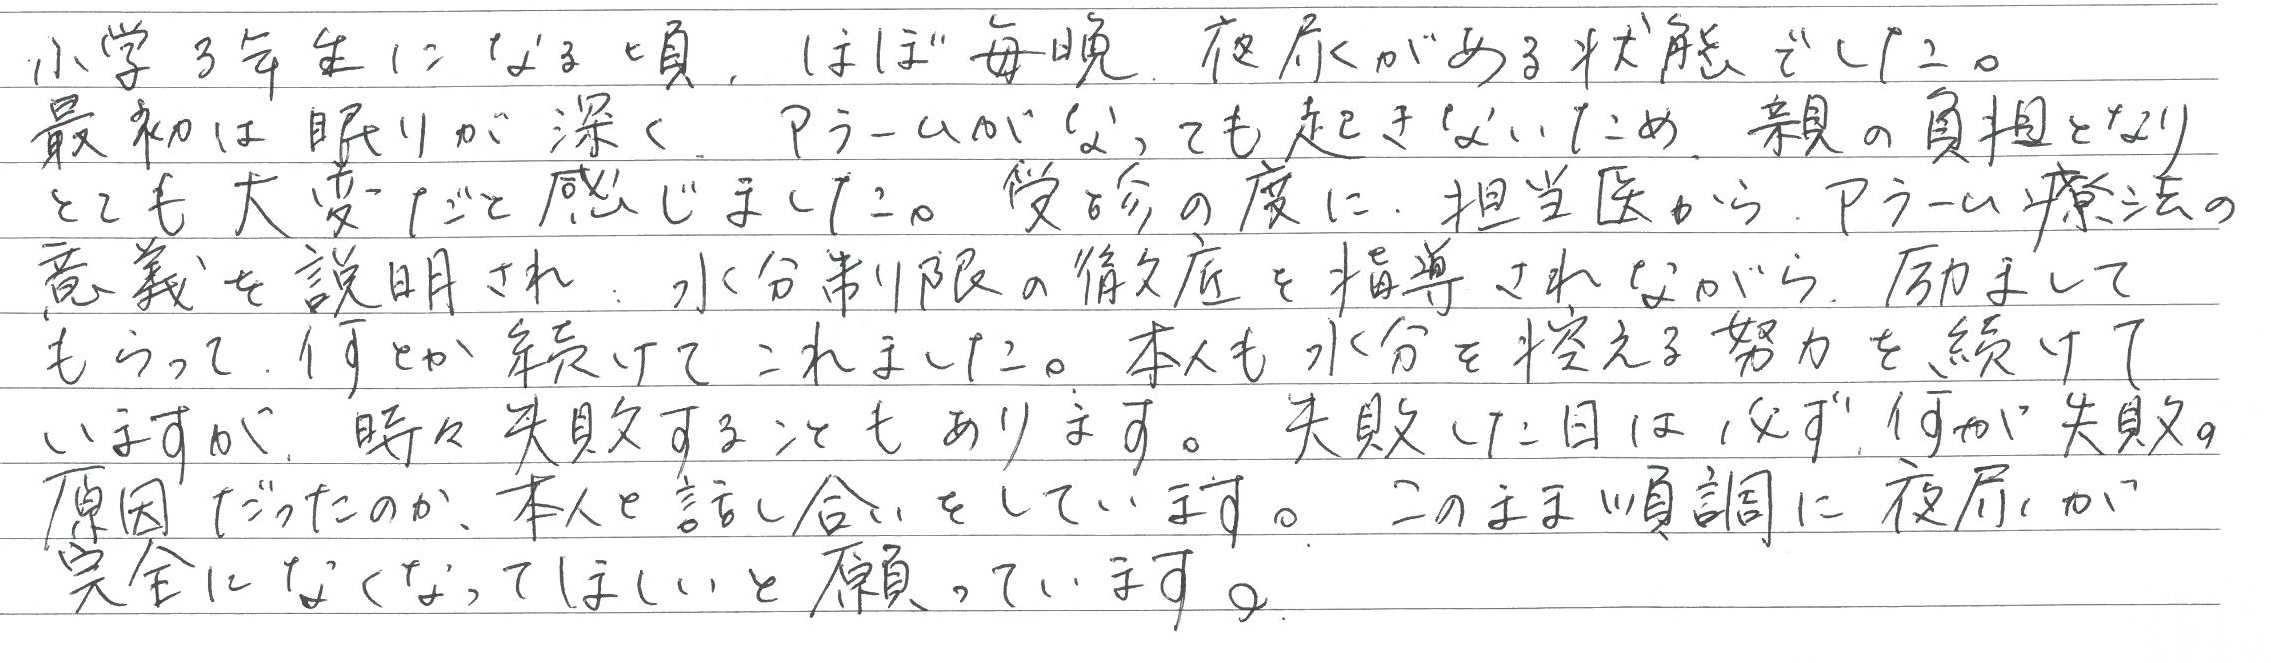 小学3年生になる頃、ほぼ毎晩、夜尿がある状態でした。
最初は眠りが深く、アラームがなっても起きないため、親の負担となり
とても大変だと感じました。受診の度に、担当医から、アラーム療法の
意義を説明され、水分制限の徹底を指導されながら、励まして
もらって、何とか続けてこれました。本人も水分を控える努力を続けて
いますが、時々失敗することもあります。失敗した日は必ず、何が失敗の
原因だったのか、本人と話し合いをしています。このまま順調に夜尿が
完全になくなってほしいと願っています。